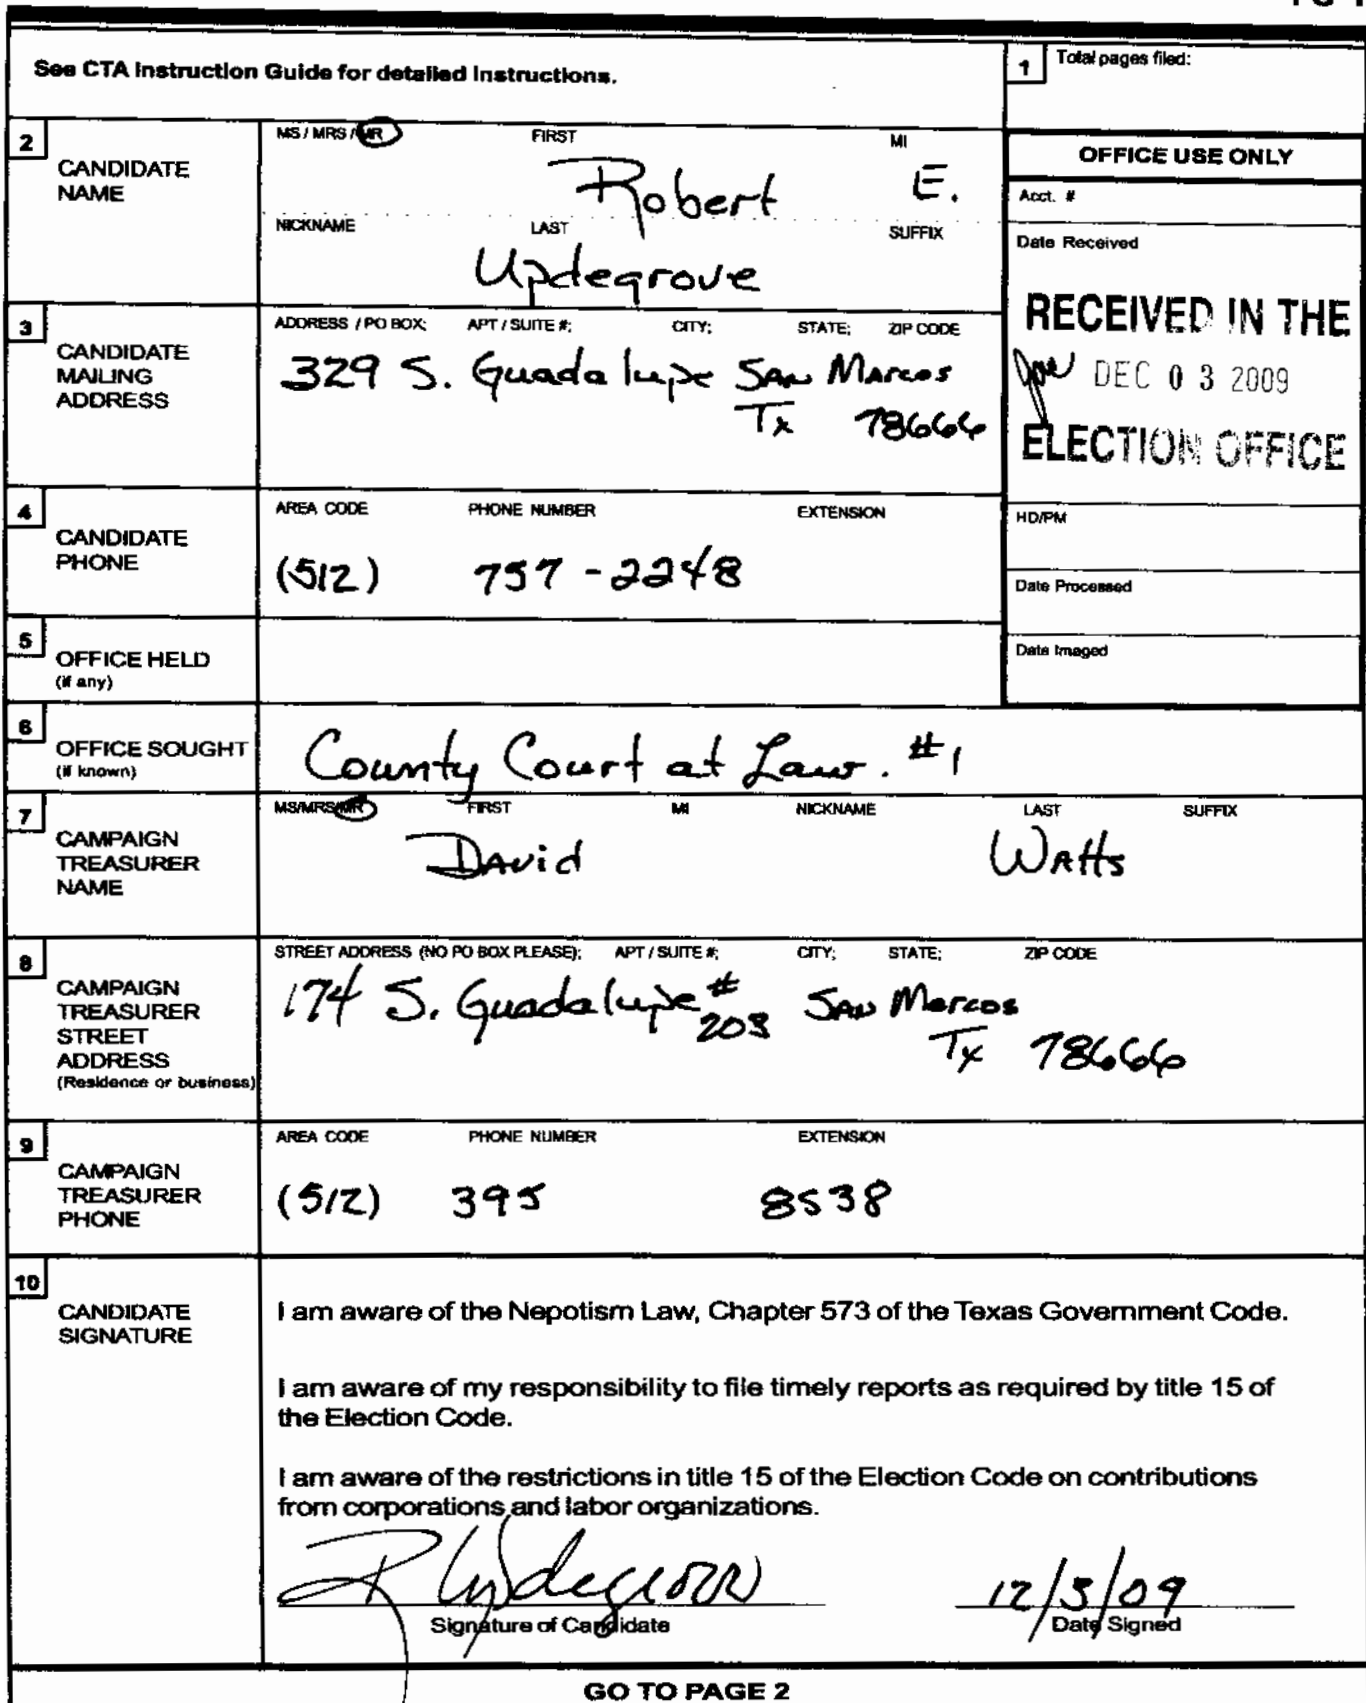 See CTA Instruction Guide for detailed Instructions.
1 Total pages filed:
2 CANDIDATE NAME
MS / MRS / MR FIRST MI
Robert E.
NICKNAME LAST SUFFIX
Updegrove
OFFICE USE ONLY
Acct. #
Date Received
RECEIVED IN THE
DEC 03 2009
ELECTION OFFICE
HD/PM
Date Processed
Date Imaged
3 CANDIDATE MAILING ADDRESS
ADDRESS / PO BOX; APT / SUITE #; CITY; STATE; ZIP CODE
329 S. Guadalupe San Marcos
Tx 78666
4 CANDIDATE PHONE
AREA CODE PHONE NUMBER EXTENSION
(512) 757-2248
5 OFFICE HELD
(if any)
6 OFFICE SOUGHT
(if known)
County Court at Law. #1
7 CAMPAIGN TREASURER NAME
MS/MRS/MR FIRST MI NICKNAME LAST SUFFIX
David Watts
8 CAMPAIGN TREASURER STREET ADDRESS
(Residence or business)
STREET ADDRESS (NO PO BOX PLEASE); APT / SUITE #; CITY; STATE; ZIP CODE
174 S. Guadalupe # 203 San Marcos
Tx 78666
9 CAMPAIGN TREASURER PHONE
AREA CODE PHONE NUMBER EXTENSION
(512) 395 8538
10 CANDIDATE SIGNATURE
I am aware of the Nepotism Law, Chapter 573 of the Texas Government Code.
I am aware of my responsibility to file timely reports as required by title 15 of
the Election Code.
I am aware of the restrictions in title 15 of the Election Code on contributions
from corporations and labor organizations.
R Updegrove 12/3/09
Signature of Candidate Date Signed
GO TO PAGE 2